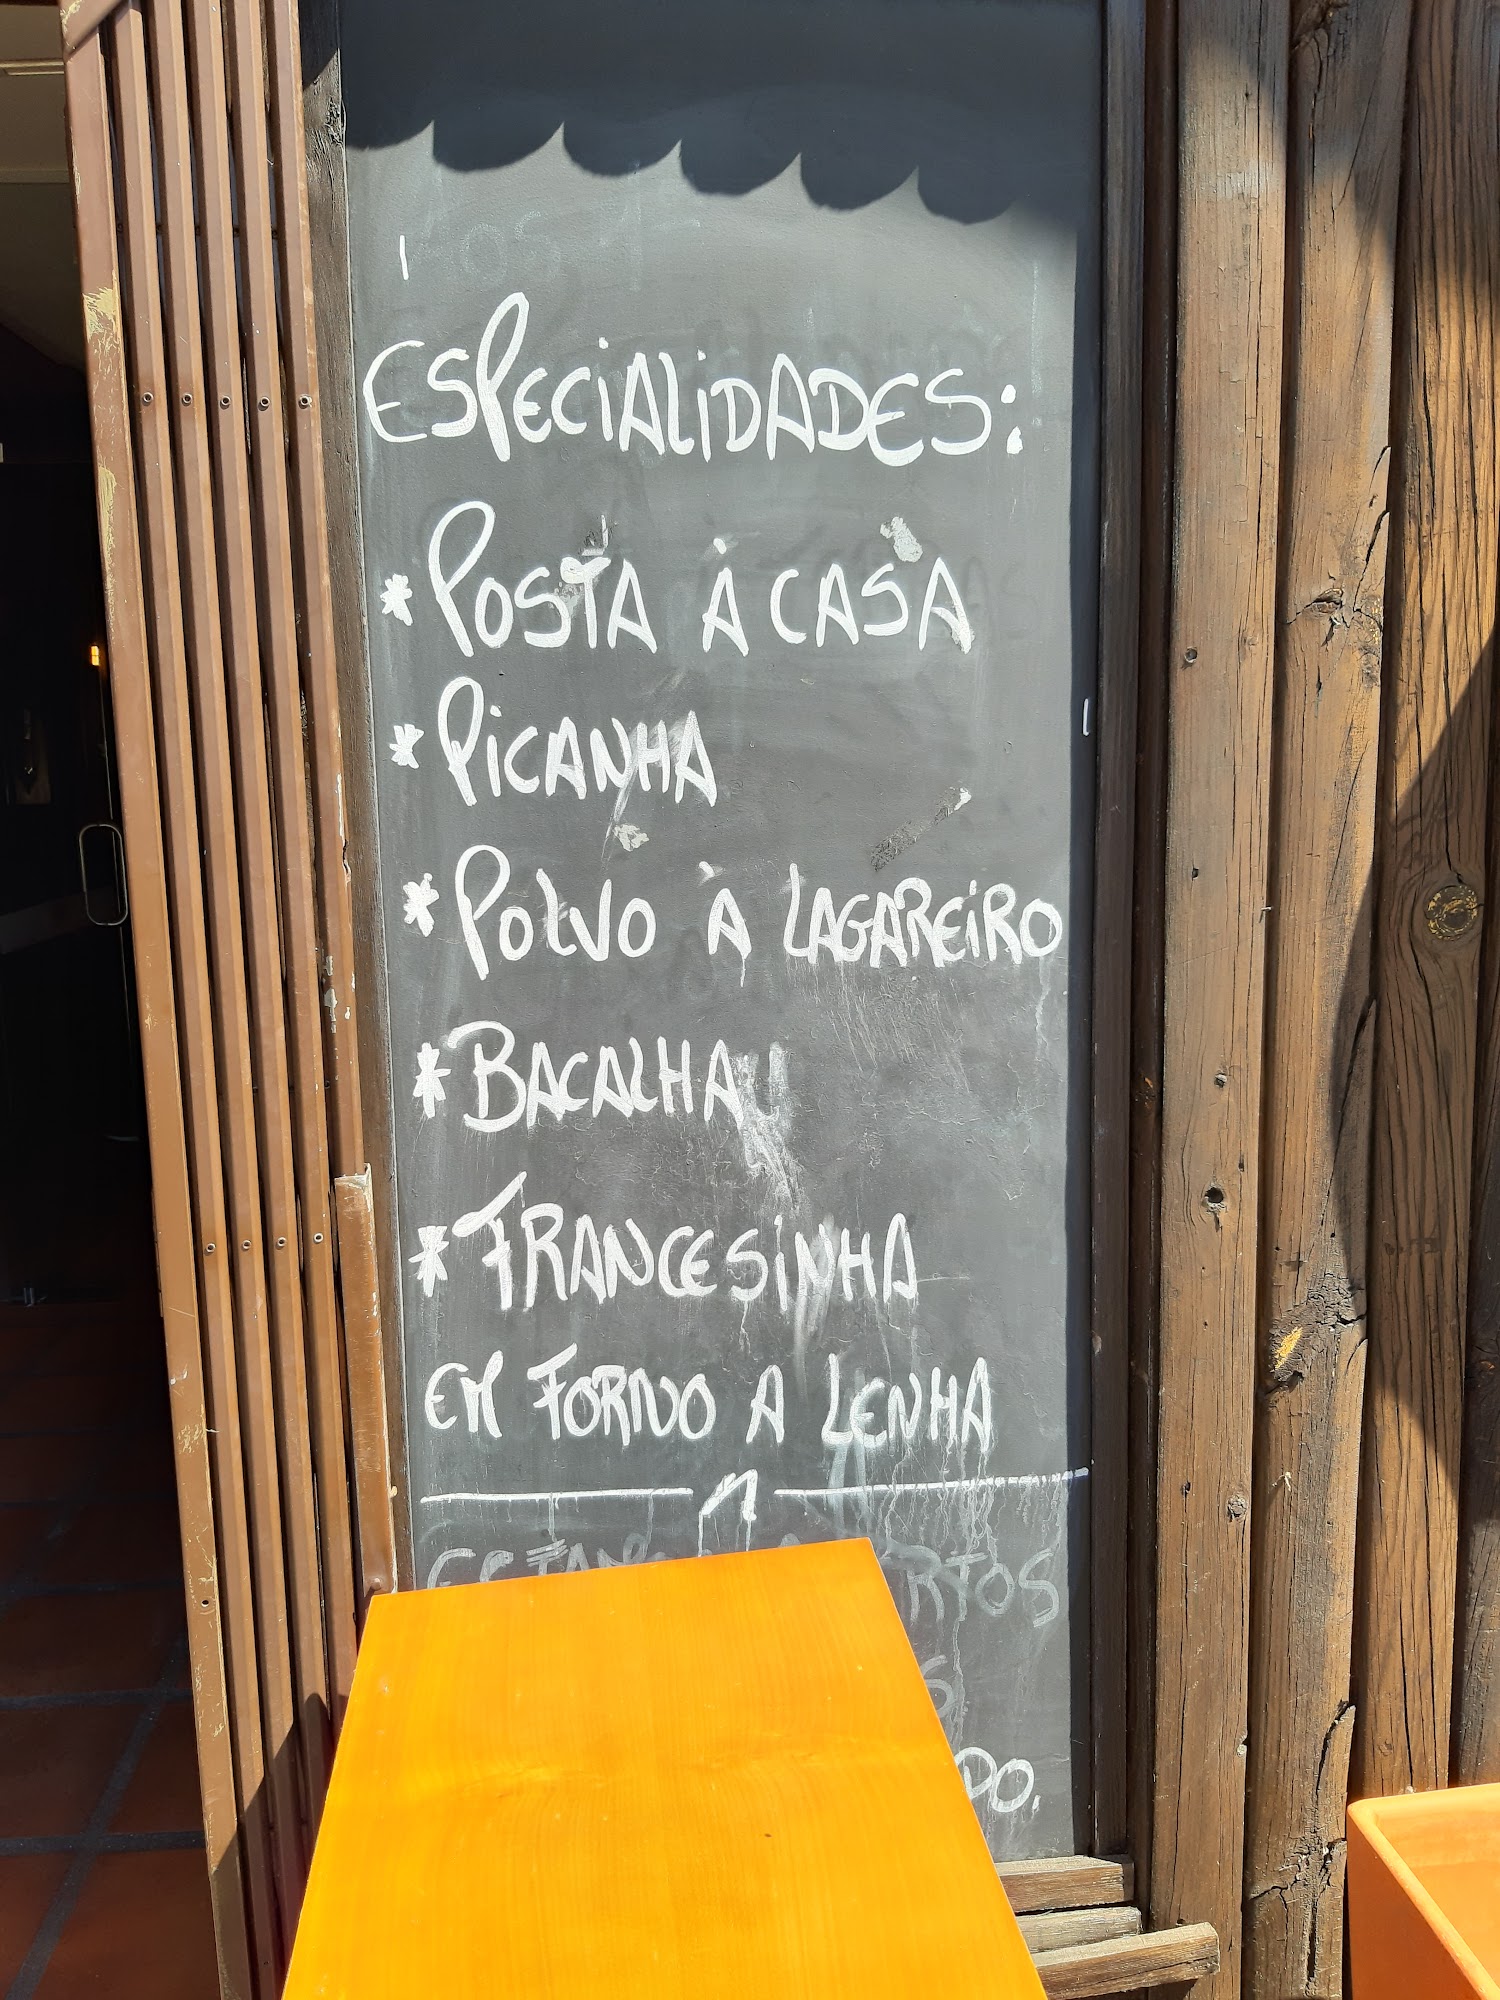 ESPECIALIDADES:
* POSTA À CASA
* PICANHA
* POLVO À LAGAREIRO
* BACALHAU
* FRANCESINHA
EM FORNO A LENHA